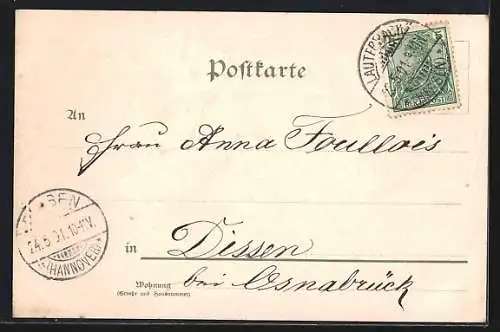 LAUTERBACH
Postkarte
An
Frau Anna Foullois
24.6.01.10-11V.
(HANNOVER)
in Dissen
Wohnung
(Straße und Hausnummer)
bei Osnabrück